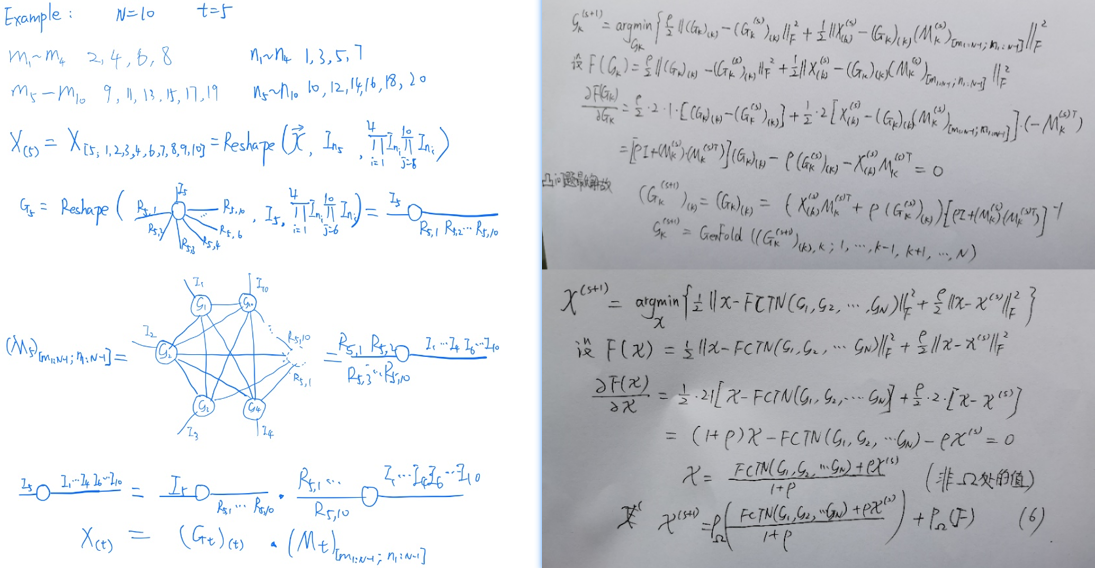 Example: N=10 t=5
m₁~m₄ 2, 4, 6, 8 n₁~n₄ 1, 3, 5, 7
m₅~m₁₀ 9, 11, 13, 15, 17, 19 n₅~n₁₀ 10, 12, 14, 16, 18, 20
X₍₅₎ = X_[5, 1, 2, 3, 4, 6, 7, 8, 9, 10] = Reshape(𝒳⃗, I_{n₅}, ∏_{i=1}^{4} I_{n_i} ∏_{j=6}^{10} I_{n_i})
I₅
G₅ = Reshape( R₅,₁ R₅,₂ R₅,₃ R₅,₄ R₅,₆ ... R₅,₁₀ , I₅, ∏_{i=1}^{4} I_{n_i} ∏_{j=6}^{10} I_{n_i}) = I₅ R₅,₁ R₅,₂ ... R₅,₁₀
I₁ I₁₀
G₁
I₂ G₂ R₅,₁₀
(M₅)_[m₁:N-1; n₁:N-1] = = R₅,₁ R₅,₂ I₁...I₄ I₆...I₁₀
R₅,₃...R₅,₁₀
R₅,₁
G₄
I₃ I₄
I₅ I₁...I₄ I₆...I₁₀ = I₅ R₅,₁... R₅,₁₀ · R₅,₁... R₅,₁₀ I₁...I₄I₆...I₁₀
X₍t₎ = (G_t)₍t₎ · (M_t)_[m₁:N-1; n₁:N-1]
G_k^(s+1) = argmin_{G_k} { ρ/2 ‖(G_k)_(k) - (G_k^(s))_(k)‖_F^2 + 1/2 ‖X_(k)^(s) - (G_k)_(k) (M_k^(s))_[m₁:N-1; n₁:N-1]‖_F^2
设 F(G_k) = ρ/2 ‖(G_k)_(k) - (G_k^(s))_(k)‖_F^2 + 1/2 ‖X_(k)^(s) - (G_k)_(k) (M_k^(s))_[m₁:N-1; n₁:N-1]‖_F^2
∂F(G_k)/∂G_k = ρ/2 · 2 · 1 · [(G_k)_(k) - (G_k^(s))_(k)] + 1/2 · 2 [X_(k)^(s) - (G_k)_(k) (M_k^(s))_[m₁:N-1; n₁:N-1]] · (-M_k^(s)T)
= [ρI + (M_k^(s))·(M_k^(s)T)] (G_k)_(k) - ρ(G_k^(s))_(k) - X_(k)^(s) M_k^(s)T = 0
凸问题
(G_k^(s+1))_(k) = (G_k)_(k) = (X_(k)^(s) M_k^(s)T + ρ(G_k^(s))_(k)) [ρI + (M_k^(s))(M_k^(s)T)]^-1
G_k^(s+1) = GenFold((G_k^(s+1))_(k), k; 1, ..., k-1, k+1, ..., N)
𝒳^(s+1) = argmin_𝒳 { 1/2 ‖𝒳 - FCTN(G₁, G₂, ..., G_N)‖_F^2 + ρ/2 ‖𝒳 - 𝒳^(s)‖_F^2 }
设 F(𝒳) = 1/2 ‖𝒳 - FCTN(G₁, G₂, ... G_N)‖_F^2 + ρ/2 ‖𝒳 - 𝒳^(s)‖_F^2
∂F(𝒳)/∂𝒳 = 1/2 · 2·1 [𝒳 - FCTN(G₁, G₂, ... G_N)] + ρ/2 · 2 · [𝒳 - 𝒳^(s)]
= (1+ρ)𝒳 - FCTN(G₁, G₂, ... G_N) - ρ𝒳^(s) = 0
𝒳 = (FCTN(G₁, G₂, ... G_N) + ρ𝒳^(s))/(1+ρ) (非Ω处的值)
𝒳^(s+1) = P_Ω((FCTN(G₁, G₂, ... G_N) + ρ𝒳^(s))/(1+ρ)) + P_Ω(F) (6)